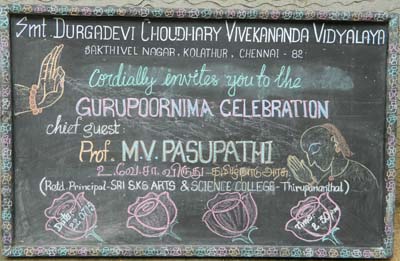 Smt. DURGADEVI CHOUDHARY VIVEKANANDA VIDYALAYA
SAKTHIVEL NAGAR, KOLATHUR, CHENNAI - 82
Cordially invites you to the
GURUPOORNIMA CELEBRATION
chief guest:
Prof. M.V. PASUPATHI
உ.வே.சா. விருது - தமிழ்நாடு அரசு
(Retd. Principal - SRI S.K.G ARTS & SCIENCE COLLEGE - Thirupananthal)
Date:
Time: